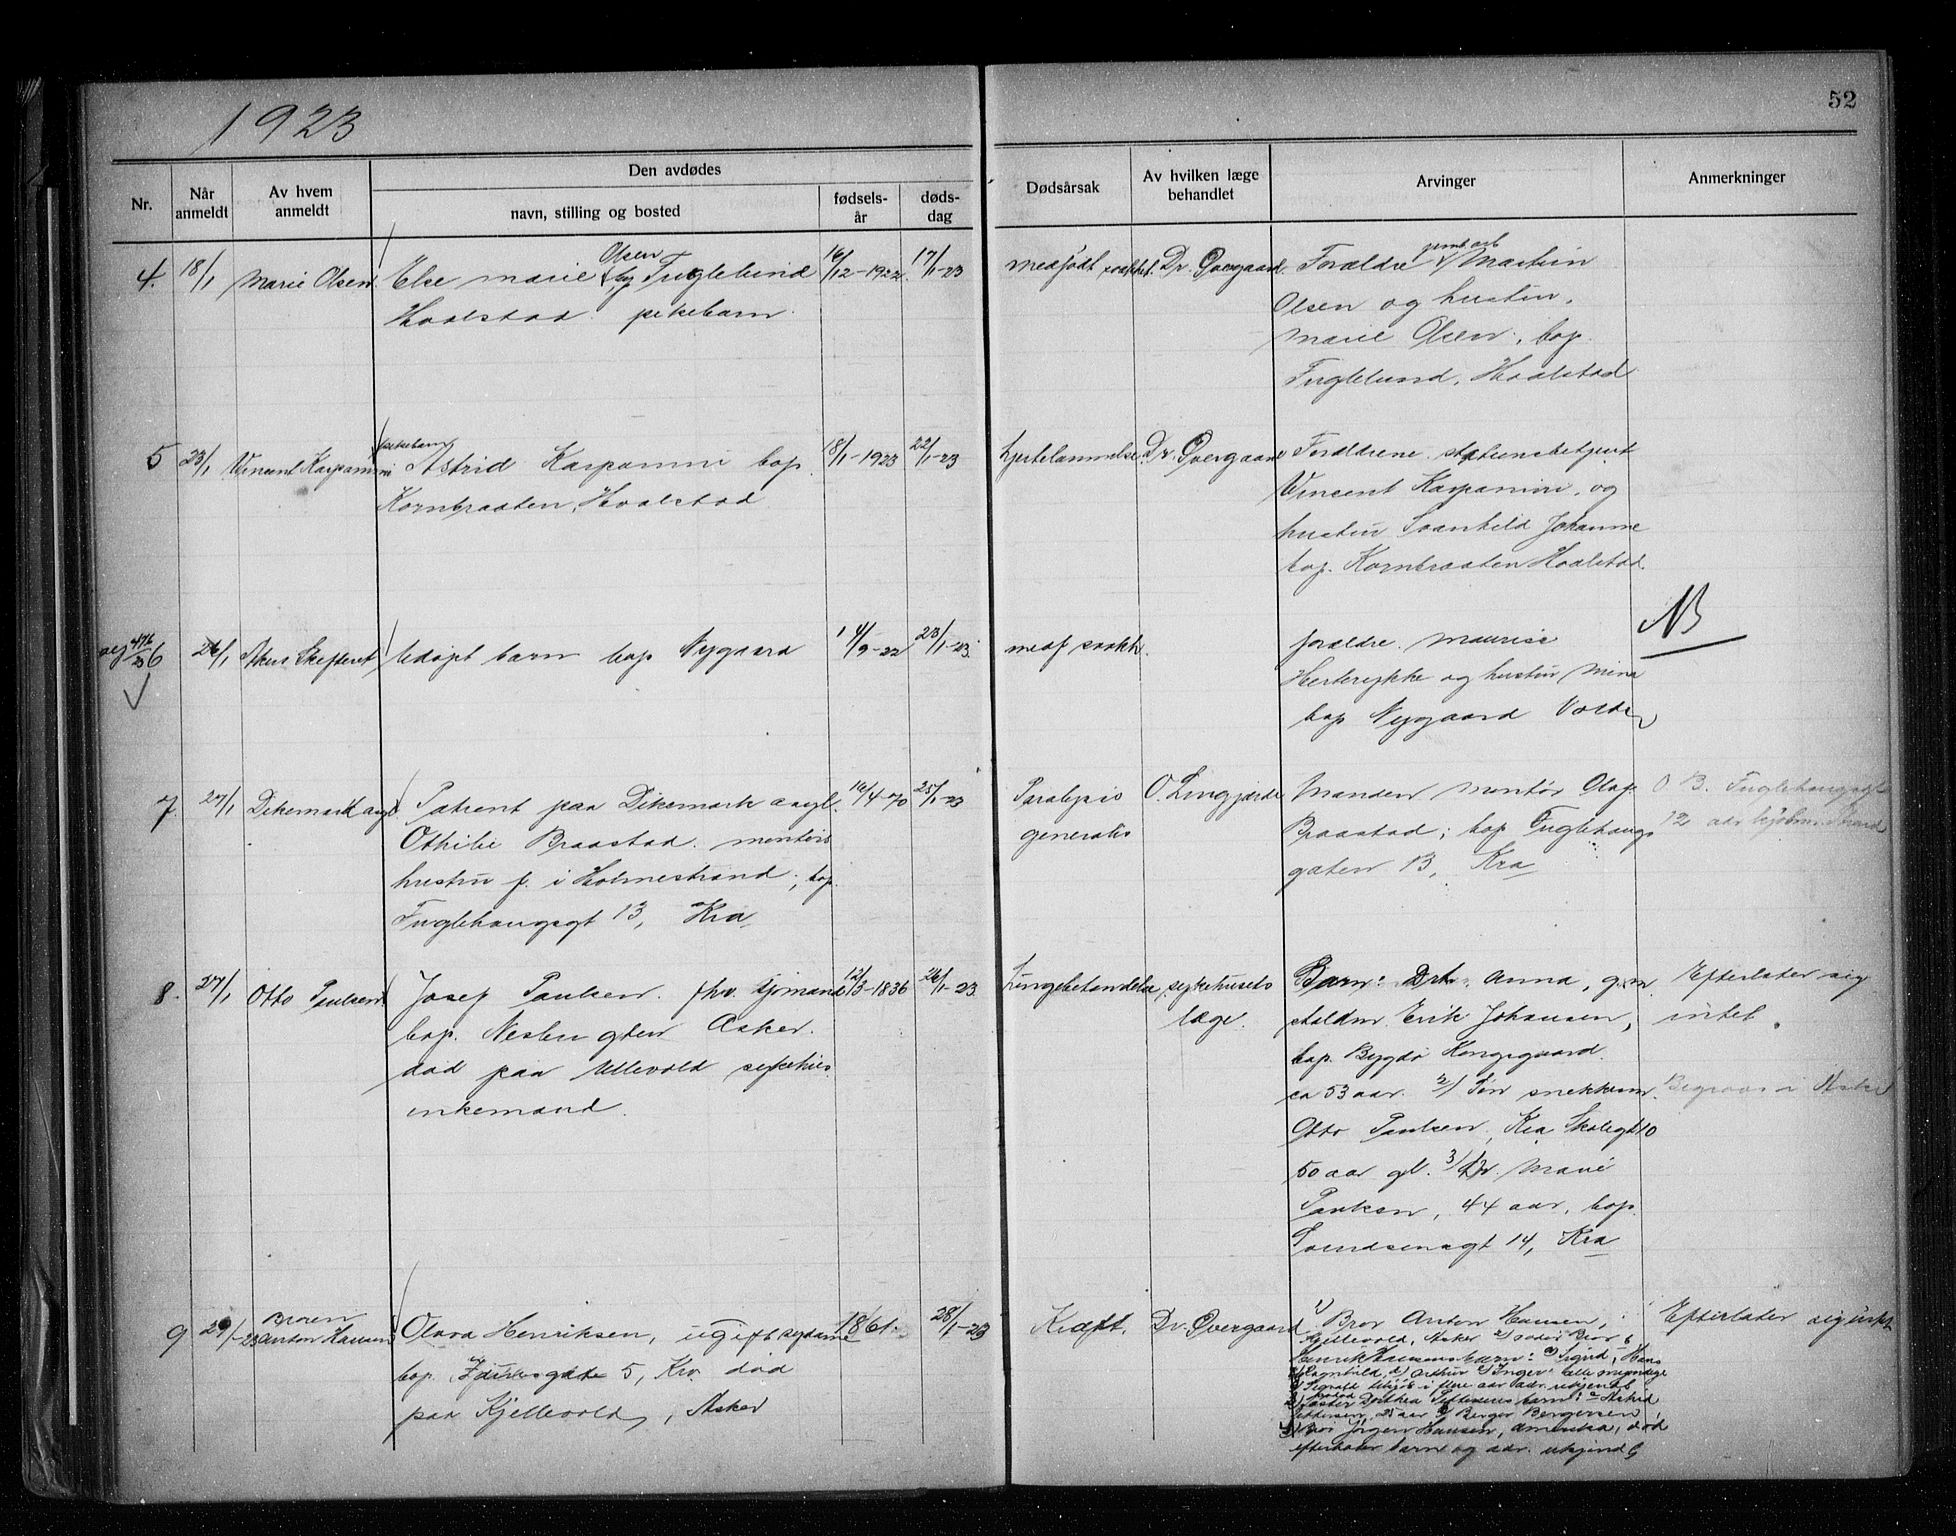 1923
52
Nr.
Når anmeldt
Av hvem anmeldt
Den avdødes
navn, stilling og bosted
fødsels-år
døds-dag
Dødsårsak
Av hvilken læge behandlet
Arvinger
Anmerkninger
4. 18/1 Marie Olsen. Else Marie Olsen Fuglelund 16/12-1922. 17/1-23 medfødt svakhet. Dr. Overgaard. Forældre Martin
Hvalstad. pikebarn. Olsen og hustru,
Marie Olsen, bop.
Fuglelund, Hvalstad
5 23/1 Vincent Kasparini pikebarn Astrid Kasparini bop. 18/1-1923 22/1-23 hjertelammelse. Dr. Overgaard Forældrene, stationsbetjent
Kornbraaten, Hvalstad Vincent Kasparini, og
hustru Svanhild Johanne
bop. Kornbraaten Hvalstad.
6 26/1 Akers Skifteret Udøpt barn bop Nygaard 14/9-22 23/1-23. medf svakh. forældre. Maurise NB
og hustru Mina
bop Nygaard
7. 27/1 Dikemark asyl Patient paa Dikemark asyl. 16/4-70 25/1-23 Paralysis O. Lingjærde Manden montør Olaf
Othilie Braastad. montørs generalis Braastad, bop Fuglehaugs
hustru f. i Holmestrand, bop. gaten 13, Kra
Fuglehaugsgt 13, Kra O B. Fuglehaugsgt
12
8. 27/1 Otto Paulsen Josef Paulsen. fhv. sjømand 12/3-1836 26/1-23. Lungebetændelse, sykehusets Barn: Dtr. Anna, g.m. Efterlater sig
bop. Nesbu Asker. læge. Erik Johansen, intet.
død paa Ullevold sykehus bop. Bygdø Kongsgaard.
enkemand. ca 53 aar. 2) Søn snekkerm. Begraves i Asker
Otto Paulsen, Kra Skolegt 10
50 aar gl. 3) Dtr. Marie
Paulsen, 44 aar, bop.
Svendsensgt 14, Kra
9 29/1-23 Broren Anton Hansen Olava Henriksen, ugift sydame 1861. 28/1-23 Kræft. Dr. Overgaard 1) Bror Anton Hansen, Efterlater sig intet
bop. 5, Kra død Kjellevold, Asker 2)
paa Kjellevold, Asker Henrik Hansens barn: Sigrid, Hans
Ragnhild, Arthur Inger alle myndige
i flere aar adr. ukjendt
25 aar Bergersen
Bror Jørgen Hansen, Amerika, død
efterlater barn og adr. ukjendt